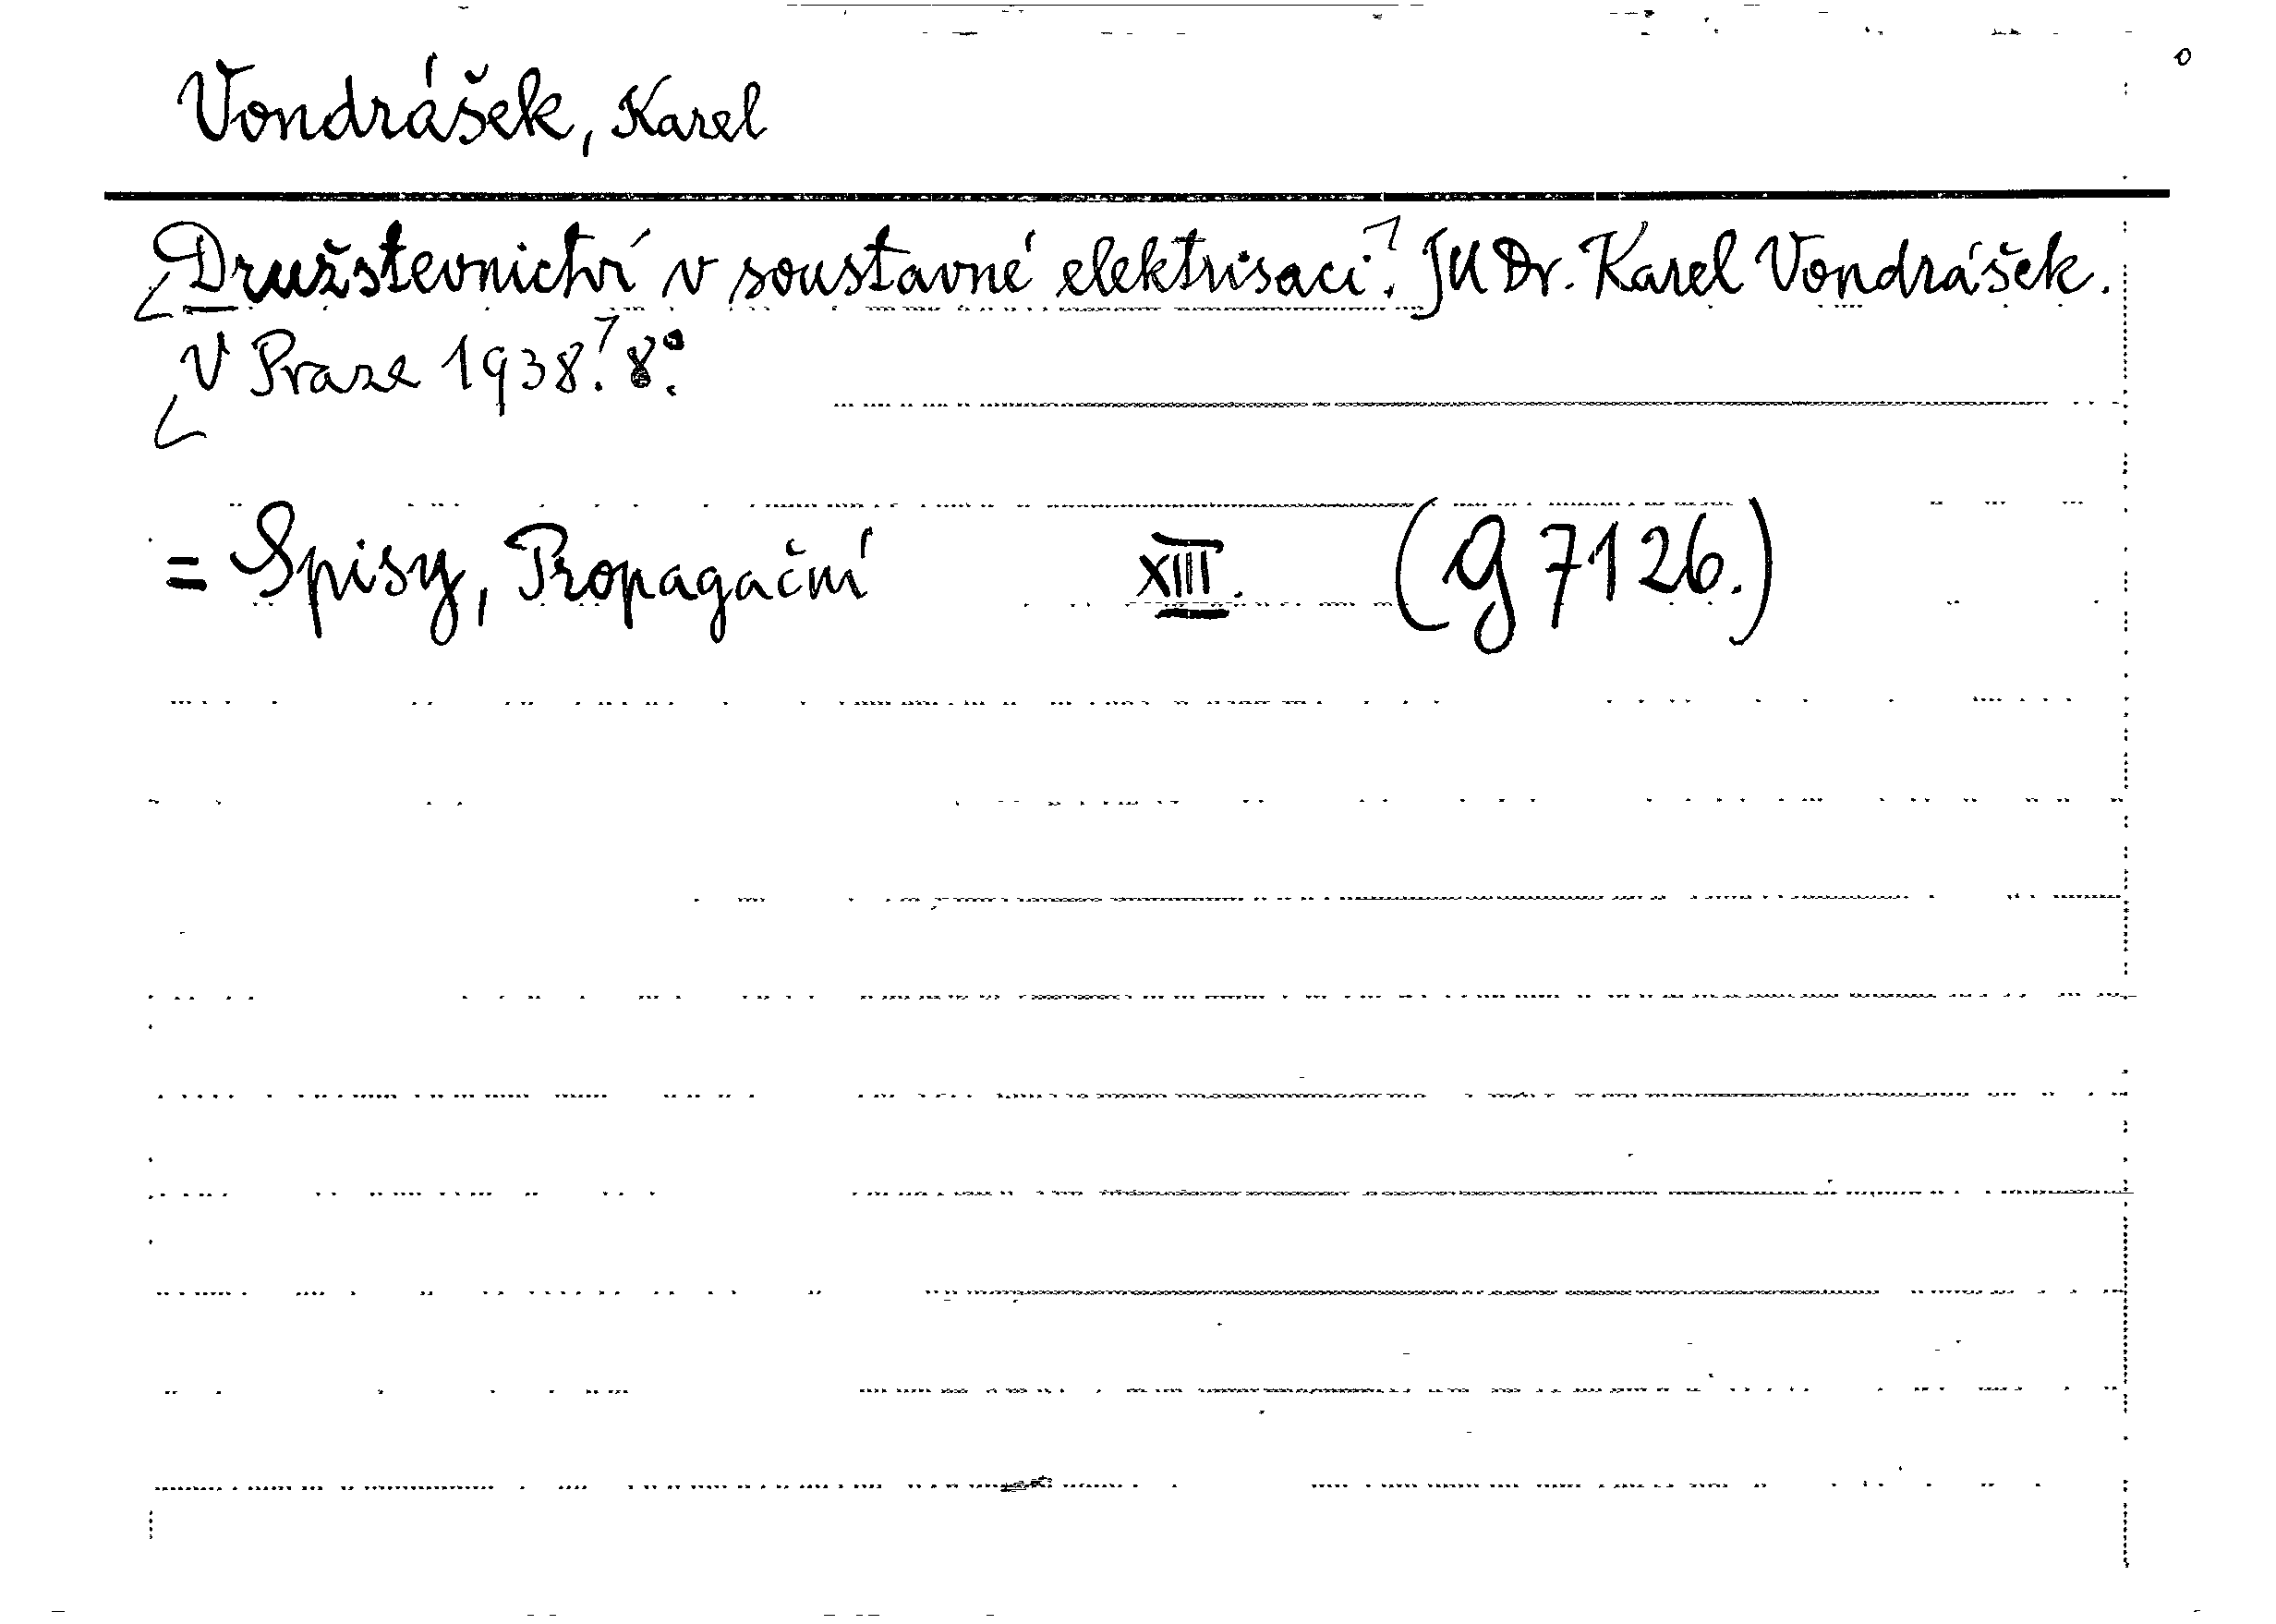 Vondrášek, Karel
Družstevnictví v soustavné elektrisaci. JUDr. Karel Vondrášek.
V Praze 1938. 8°.
= Spisy, Propagační XIII. (G 7126.)